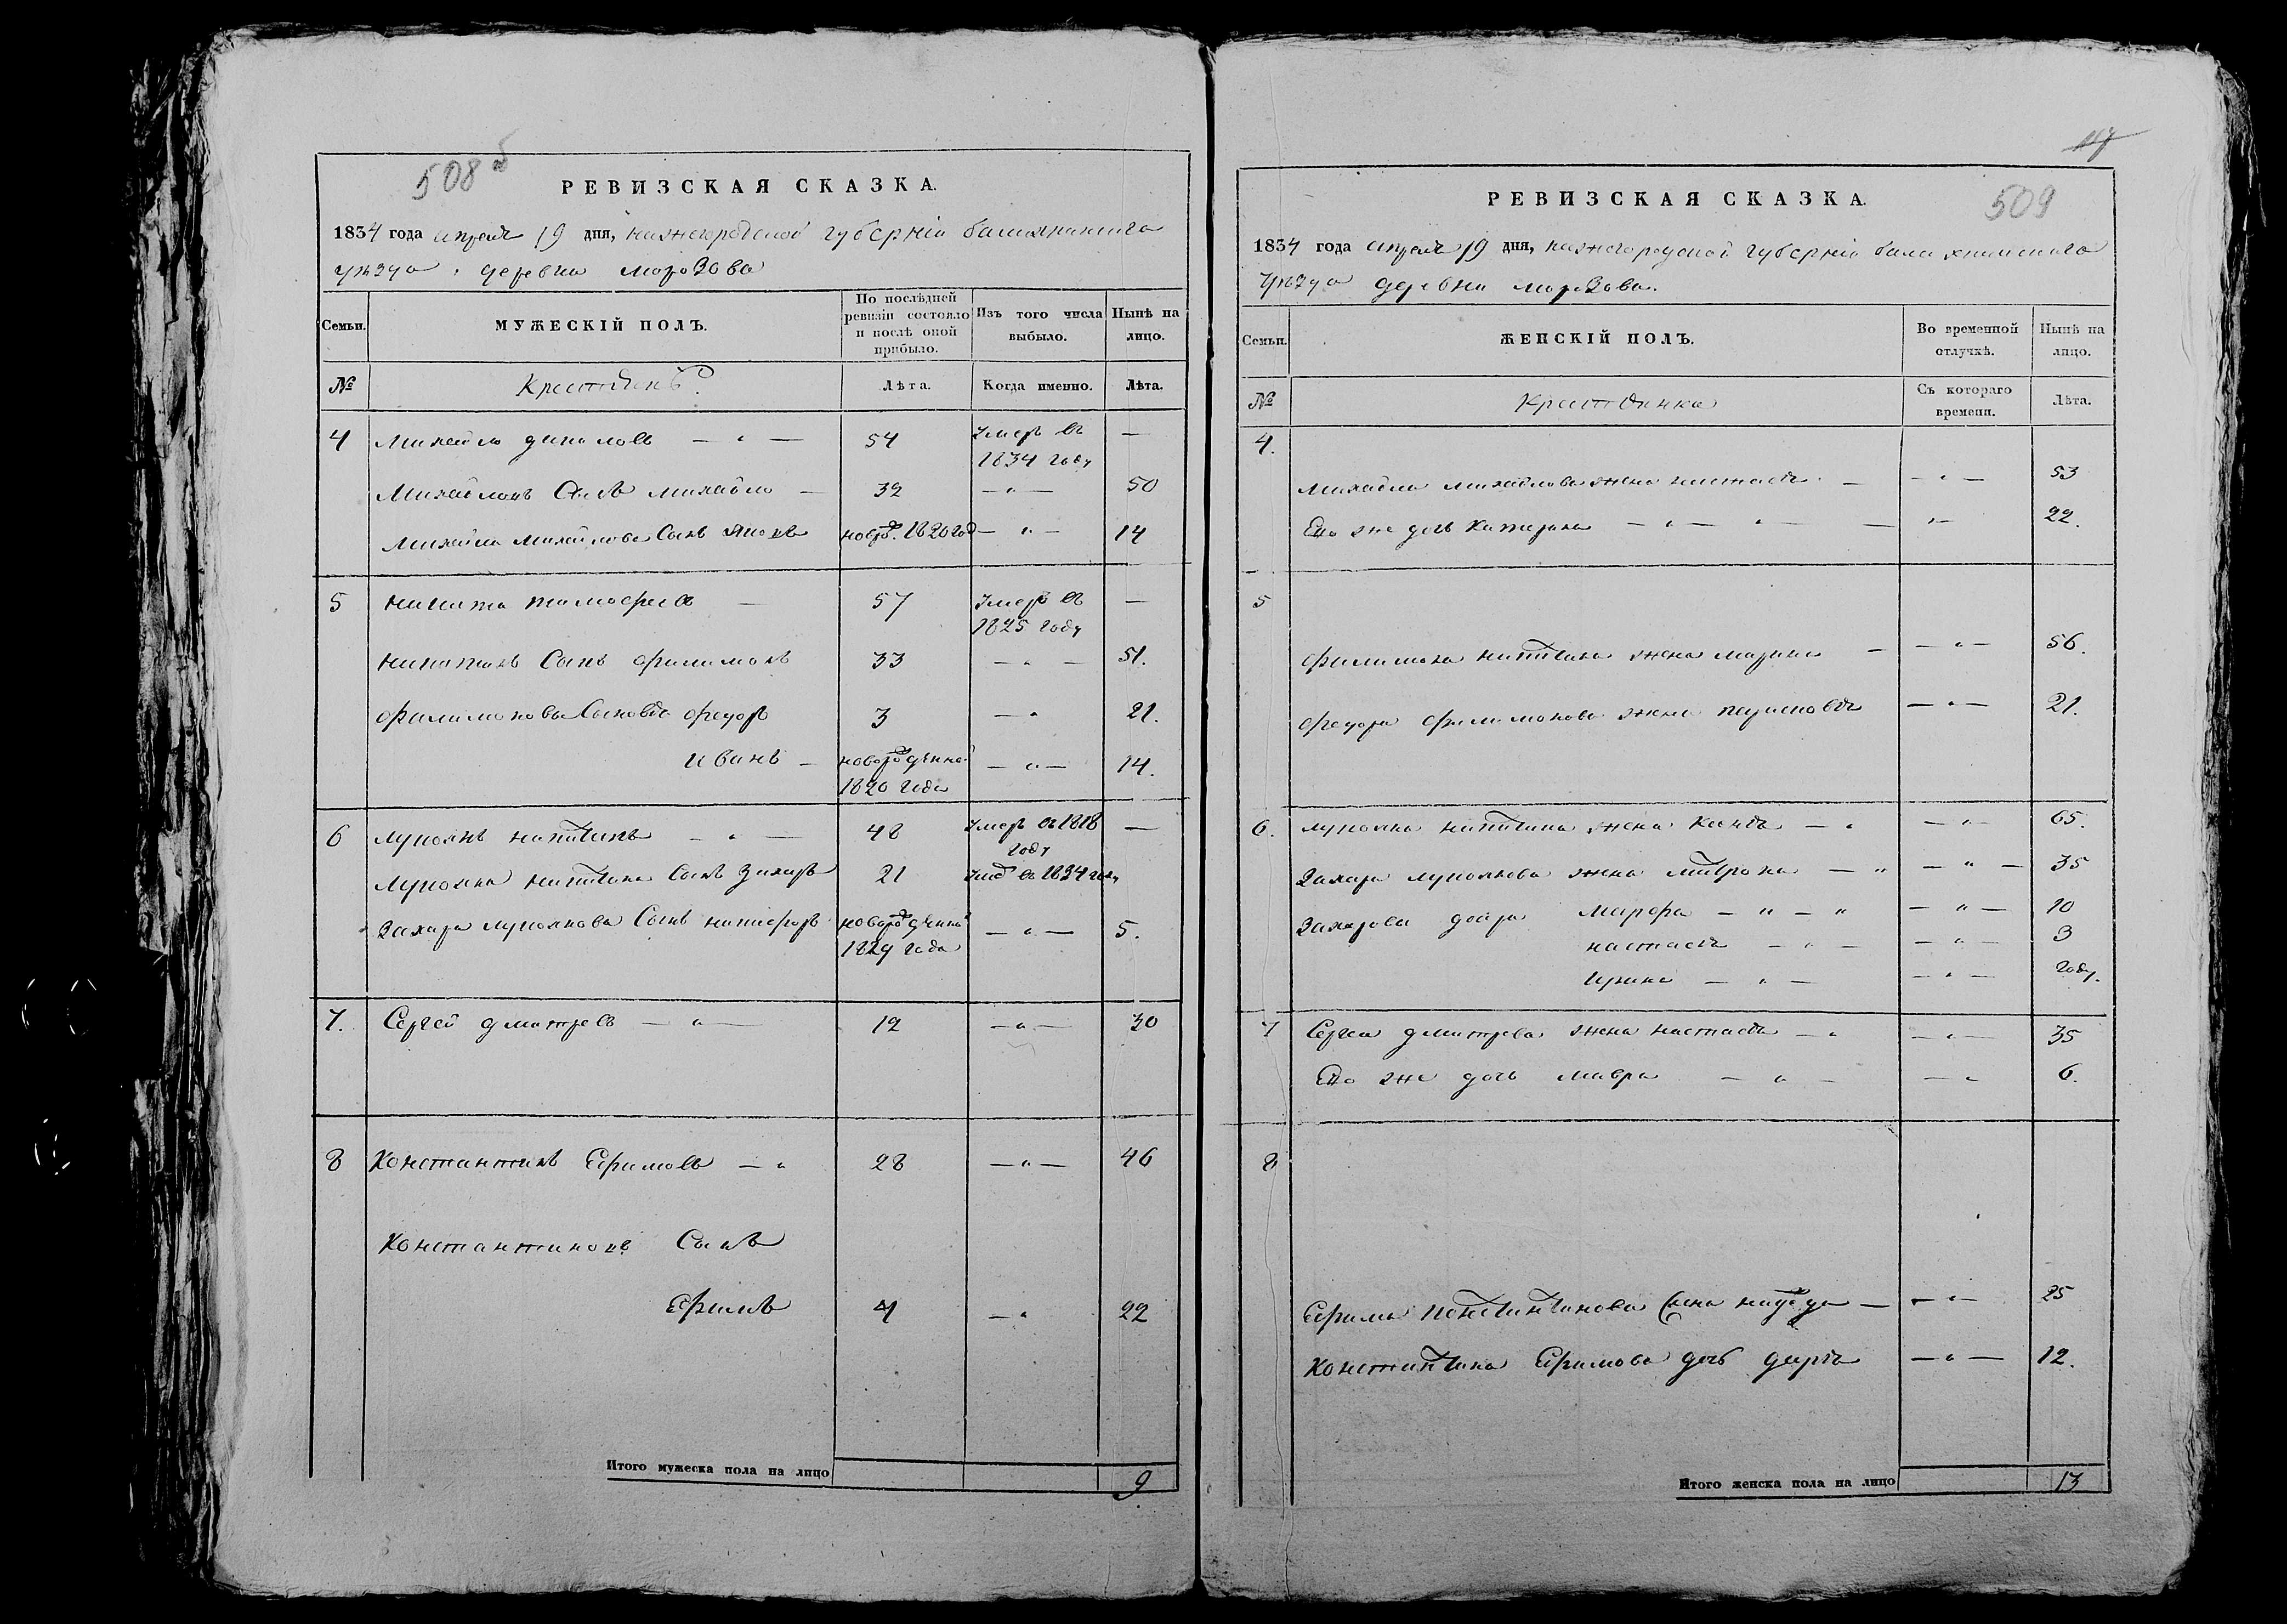 508 б
РЕВИЗСКАЯ СКАЗКА.
1834 года апреля 19 дня, нижегородской губерніи балахнинскаго
уѣзда деревни морозова
Семьи.
МУЖЕСКІЙ ПОЛЪ.
По послѣдней ревизіи состояло и послѣ оной прибыло.
Изъ того числа выбыло.
Нынѣ на лицо.
№ Крестьянъ Лѣта. Когда именно. Лѣта.
4 Михайло данилов — " — 54 Умеръ въ 1834 году —
Михайловъ Сынъ михайло — 32 — " — 50
Михайла михайлова Сынъ яковъ новор. 1820 год — " — 14
5 никита тимофеев — 57 Умеръ въ 1825 году —
никитинъ Сынъ филимонъ 33 — " — 51.
филимоновы Сыновья федоръ 3 — " 21.
иванъ — новорожденной 1820 года — " — 14.
6 лукоянъ никитинъ — " — 48 Умеръ въ 1818 году —
лукояна никитина Сынъ захаръ 21 Умер въ 1834 году
Захара лукоянова Сынъ никифоръ новорожденной 1829 года — " — 5.
7. Сергей дмитрев — " — 12 — " — 30
8 Константинъ Ефимовъ — " 28 — " — 46
Константиновъ Сынъ
Ефимъ 4 — " 22
Итого мужеска пола на лицо 9
509
РЕВИЗСКАЯ СКАЗКА.
1834 года апреля 19 дня, нижегородской губерніи балахнинскаго
уѣзда деревни морозова.
Семьи.
ЖЕНСКІЙ ПОЛЪ.
Во временной отлучкѣ.
Нынѣ на лицо.
№ Крестьянка Съ котораго времени. Лѣта.
4.
Михайла михайлова жена настасья — — " — 53
Ево же дочь катерина — " — " — — " — 22.
5
филимона никитина жена марина — — " — 56.
федора филимонова жена — " — 21.
6. лукояна никитина жена — " — " — 65.
Захара лукоянова жена матрона — " — " — 35
Захаровы дочери марфа — " — " — " — 10
настасья — " — — " — 3
ирина — " — — " — году.
7 Сергея дмитрева жена настасья — " — " — 35
Ево же дочь мавра — " — — " 6.
8
Ефима Константинова жена — — " — 25
Константина Ефимова дочь дарья — " — 12.
Итого женска пола на лицо 13